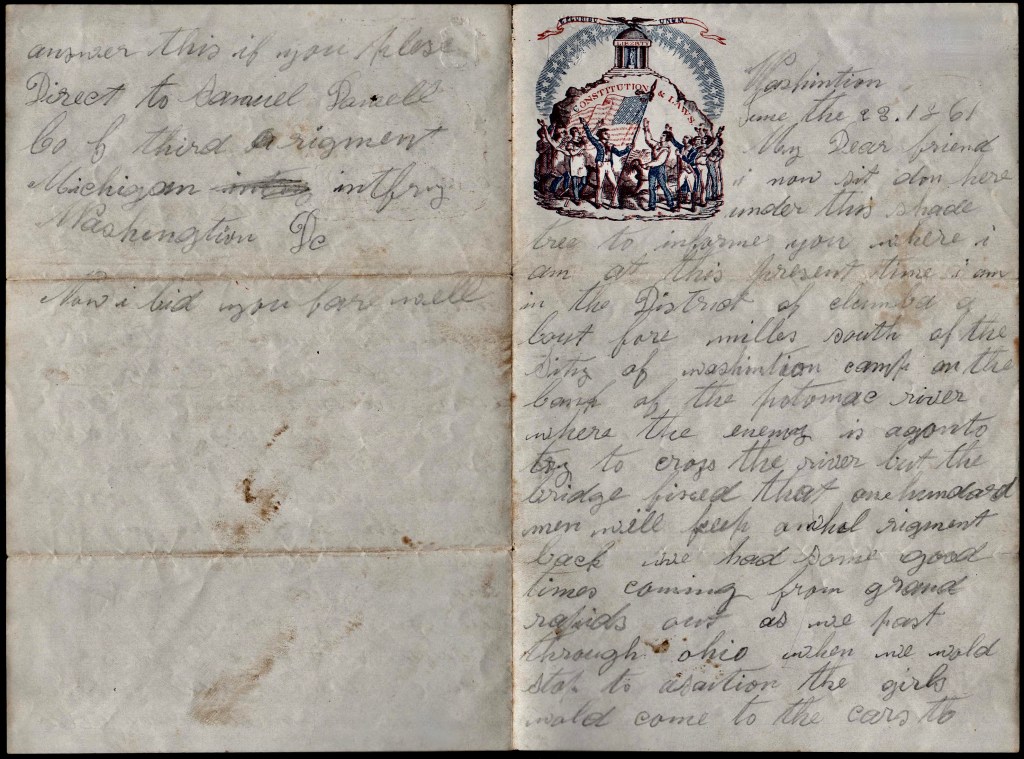 answer this if you plese
Direct to Samuel
Co f third rigment
Michigan intfry
Washengtion Dc
Now i bid you fare well
E PLURIBUS UNUM
LIBERTY
CONSTITUTION & LAWS
Washintion
June the 23. 1861
My Dear friend
i now sit don here
under this shade
tree to informe you where i
am at this present time i am
in the District of clumba a
bout fore milles south of the
sity of washintion camp on the
bank of the potomac river
where the enemy is agonto
try to cross the river but the
bridge fixed that onehundard
men will keep awhol rigment
back we had some good
times coming from grand
rapids out as we past
through ohio when we wold
stop to asaition the girls
wold come to the cars to